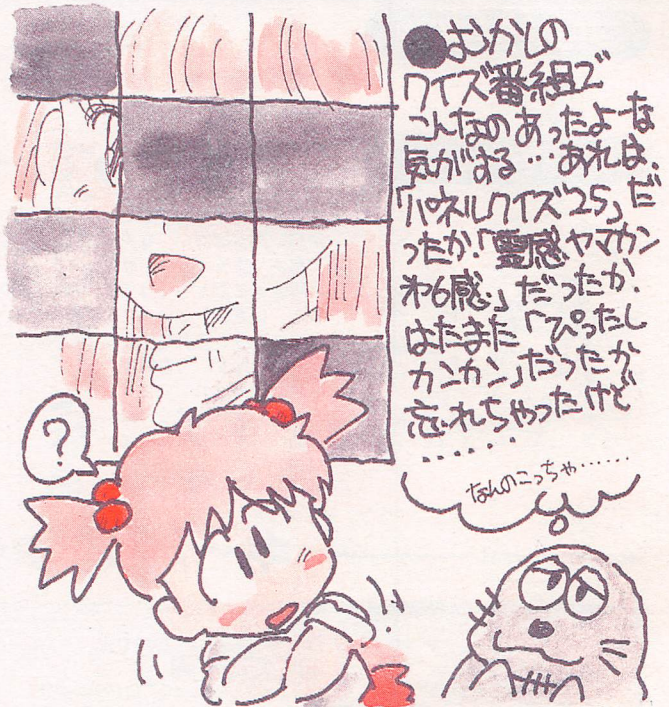 ●むかしの
クイズ番組で
こんなのあったよーな
気がする…あれは、
「パネルクイズ25」だ
ったか、「霊感ヤマカン
第6感」だったか、
はたまた「ぴったし
カンカン」だったか
忘れちゃったけど
……
なんのこっちゃ……
?